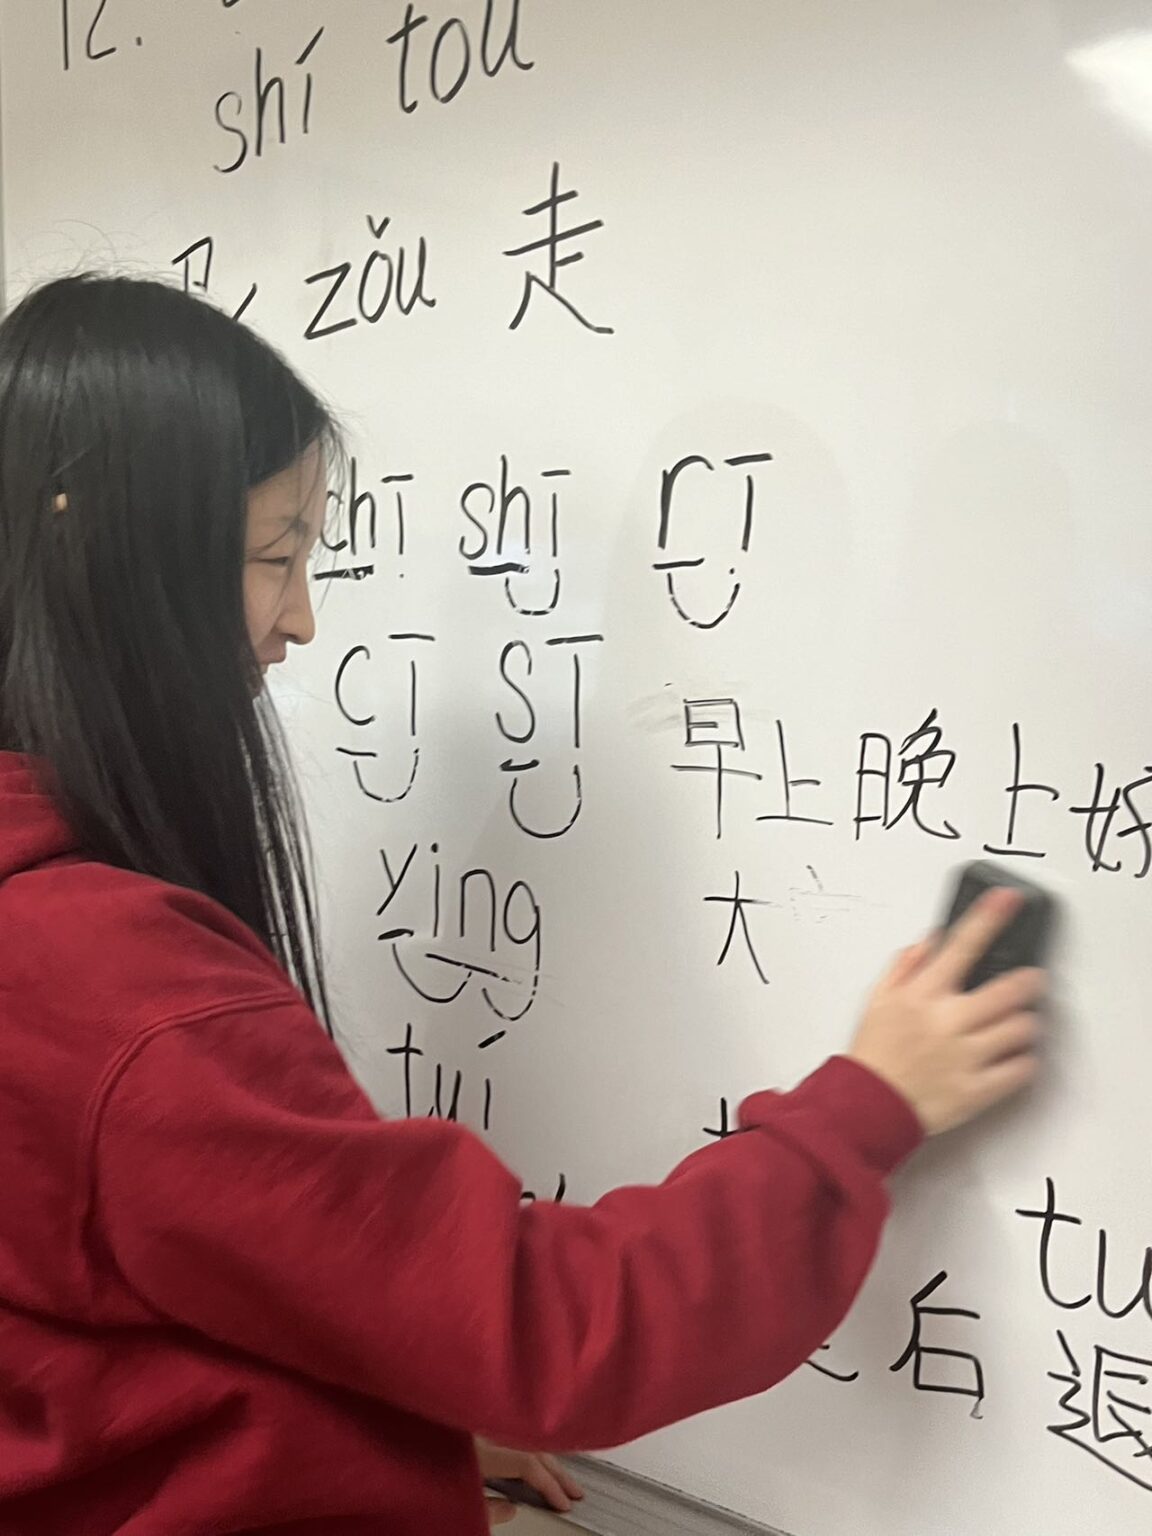 12.
shí tou
zǒu 走
chī shī rī
cī sī
早上晚上好
yıng
大
tuí
tu
后
退